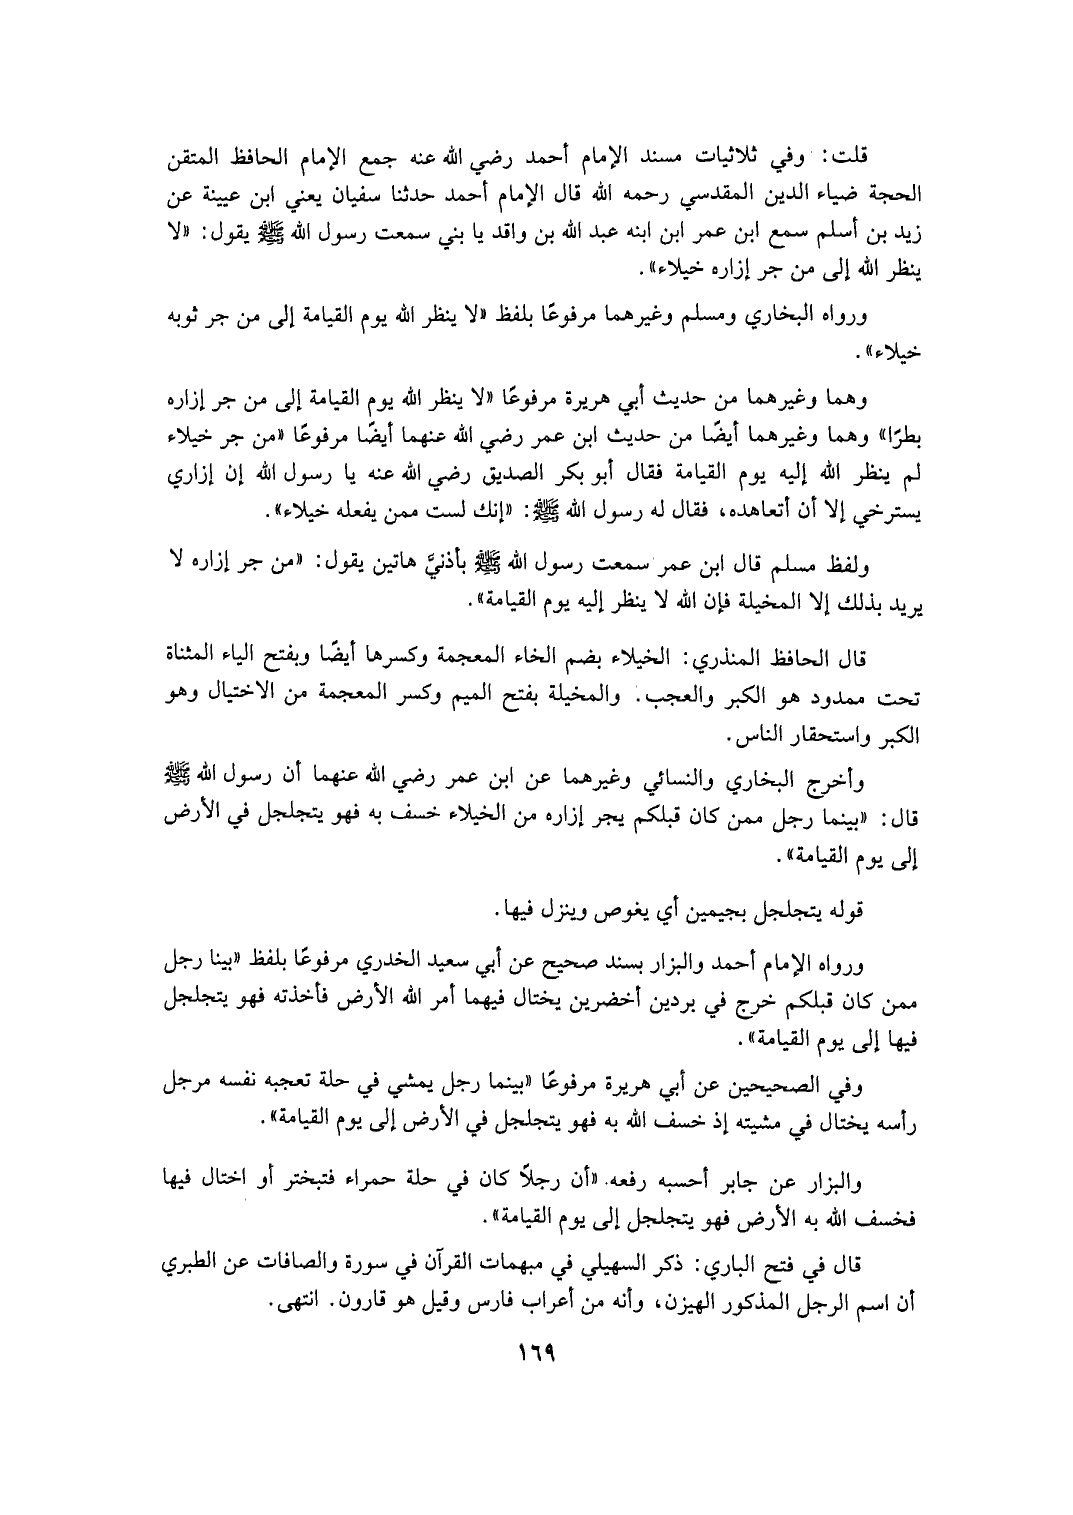 قلت: وفي ثلاثيات مسند الإمام أحمد رضي الله عنه جمع الإمام الحافظ المتقن
الحجة ضياء الدين المقدسي رحمه الله قال الإمام أحمد حدثنا سفيان يعني ابن عيينة عن
زيد بن أسلم سمع ابن عمر ابن ابنه عبد الله بن واقد يا بني سمعت رسول الله ﷺ يقول: «لا
ينظر الله إلى من جر إزاره خيلاء».
ورواه البخاري ومسلم وغيرهما مرفوعًا بلفظ «لا ينظر الله يوم القيامة إلى من جر ثوبه
خيلاء».
وهما وغيرهما من حديث أبي هريرة مرفوعًا «لا ينظر الله يوم القيامة إلى من جر إزاره
بطرًا» وهما وغيرهما أيضًا من حديث ابن عمر رضي الله عنهما أيضًا مرفوعًا «من جر خيلاء
لم ينظر الله إليه يوم القيامة فقال أبو بكر الصديق رضي الله عنه يا رسول الله إن إزاري
يسترخي إلا أن أتعاهده، فقال له رسول الله ﷺ: «إنك لست ممن يفعله خيلاء».
ولفظ مسلم قال ابن عمر سمعت رسول الله ﷺ بأذنيَّ هاتين يقول: «من جر إزاره لا
يريد بذلك إلا المخيلة فإن الله لا ينظر إليه يوم القيامة».
قال الحافظ المنذري: الخيلاء بضم الخاء المعجمة وكسرها أيضًا وبفتح الياء المثناة
تحت ممدود هو الكبر والعجب. والمخيلة بفتح الميم وكسر المعجمة من الاختيال وهو
الكبر واستحقار الناس.
وأخرج البخاري والنسائي وغيرهما عن ابن عمر رضي الله عنهما أن رسول الله ﷺ
قال: «بينما رجل ممن كان قبلكم يجر إزاره من الخيلاء خسف به فهو يتجلجل في الأرض
إلى يوم القيامة».
قوله يتجلجل بجيمين أي يغوص وينزل فيها.
ورواه الإمام أحمد والبزار بسند صحيح عن أبي سعيد الخدري مرفوعًا بلفظ «بينا رجل
ممن كان قبلكم خرج في بردين أخضرين يختال فيهما أمر الله الأرض فأخذته فهو يتجلجل
فيها إلى يوم القيامة».
وفي الصحيحين عن أبي هريرة مرفوعًا «بينما رجل يمشي في حلة تعجبه نفسه مرجل
رأسه يختال في مشيته إذ خسف الله به فهو يتجلجل في الأرض إلى يوم القيامة».
والبزار عن جابر أحسبه رفعه. «أن رجلاً كان في حلة حمراء فتبختر أو اختال فيها
فخسف الله به الأرض فهو يتجلجل إلى يوم القيامة».
قال في فتح الباري: ذكر السهيلي في مبهمات القرآن في سورة والصافات عن الطبري
أن اسم الرجل المذكور الهيزن، وأنه من أعراب فارس وقيل هو قارون. انتهى.
١٦٩